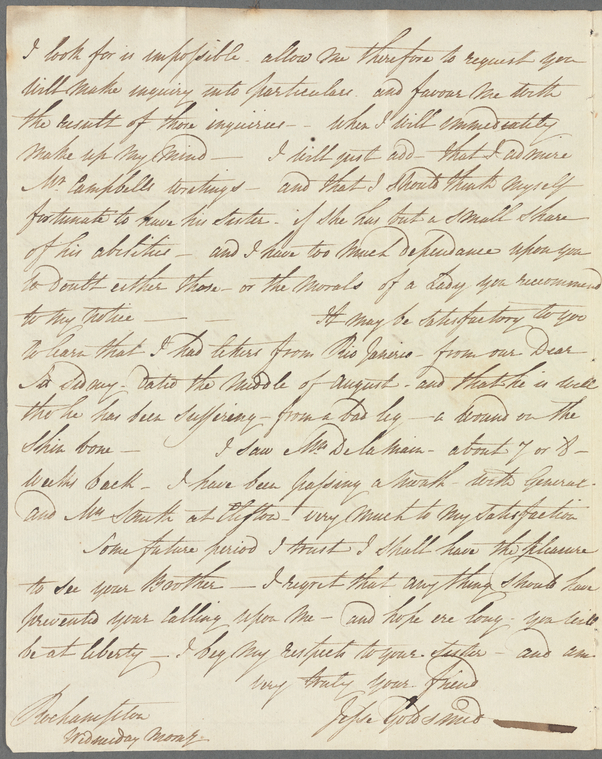 I look for is impossible. allow me therefore to request you
will make inquiry into particulars. and favour me with
the result of those inquiries – when I will immediately
make up my mind — I will just add – that I admire
Mr Campbells writings – and that I should think myself
fortunate to have his sister – if she has but a small share
of his abilities – and I have too much dependance upon you
to doubt either those – or the morals of a Lady you reccommend
to my notice — — — It may be satisfactory to you
to learn that I had letters from Rio Janerio – from our Dear
Sir Sidney – dated the middle of August – and that he is well
tho' he has been suffering – from a bad leg – a wound on the
shin bone — I saw Mrs Delamain – about 7 or 8 –
weeks back – I have been passing a month – with General –
and Mrs Smith at Clifton – very much to my satisfaction
Some future period I trust I shall have the pleasure
to see your Brother — I regret that any thing should have
prevented your calling upon me – and hope ere long – you will
be at liberty – I beg my respects to your sister – and am
very truly your friend
Roehampton Jesse Goldsmid
Wednesday Morng